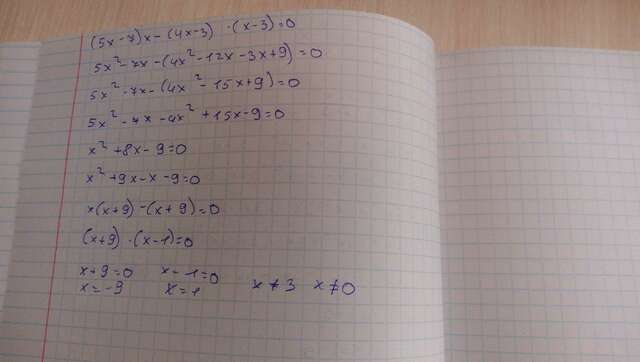 (5x-7)x-(4x-3)·(x-3)=0
5x²-7x-(4x²-12x-3x+9)=0
5x²-7x-(4x²-15x+9)=0
5x²-7x-4x²+15x-9=0
x²+8x-9=0
x²+9x-x-9=0
x(x+9)-(x+9)=0
(x+9)·(x-1)=0
x+9=0 x-1=0
x=-9 x=1 x≠3 x≠0